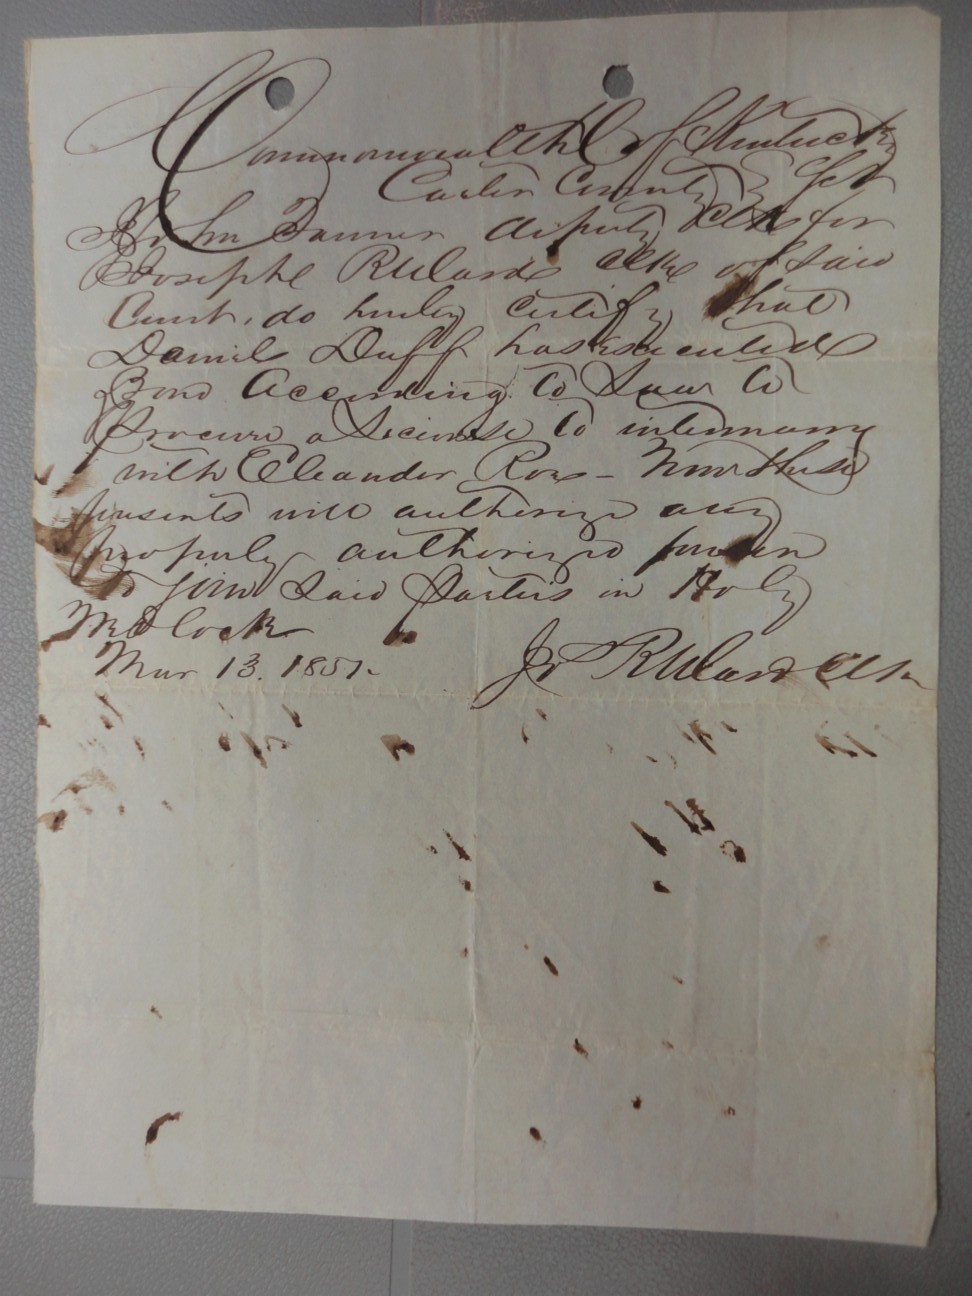 Commonwealth of Kentucky
Carter County } Sct
I John Tanner deputy Clk for
Joseph R Ward Clk of Said
Court, do hereby certify that
Daniel Duff has executed
Bond According to Law to
procure a License to intermarry
with Eleander Rose - Now these
presents will authorize any
properly authorized person
to join Said Parties in Holy
Wedlock
Mar 13. 1851.
Jos R Ward Clk